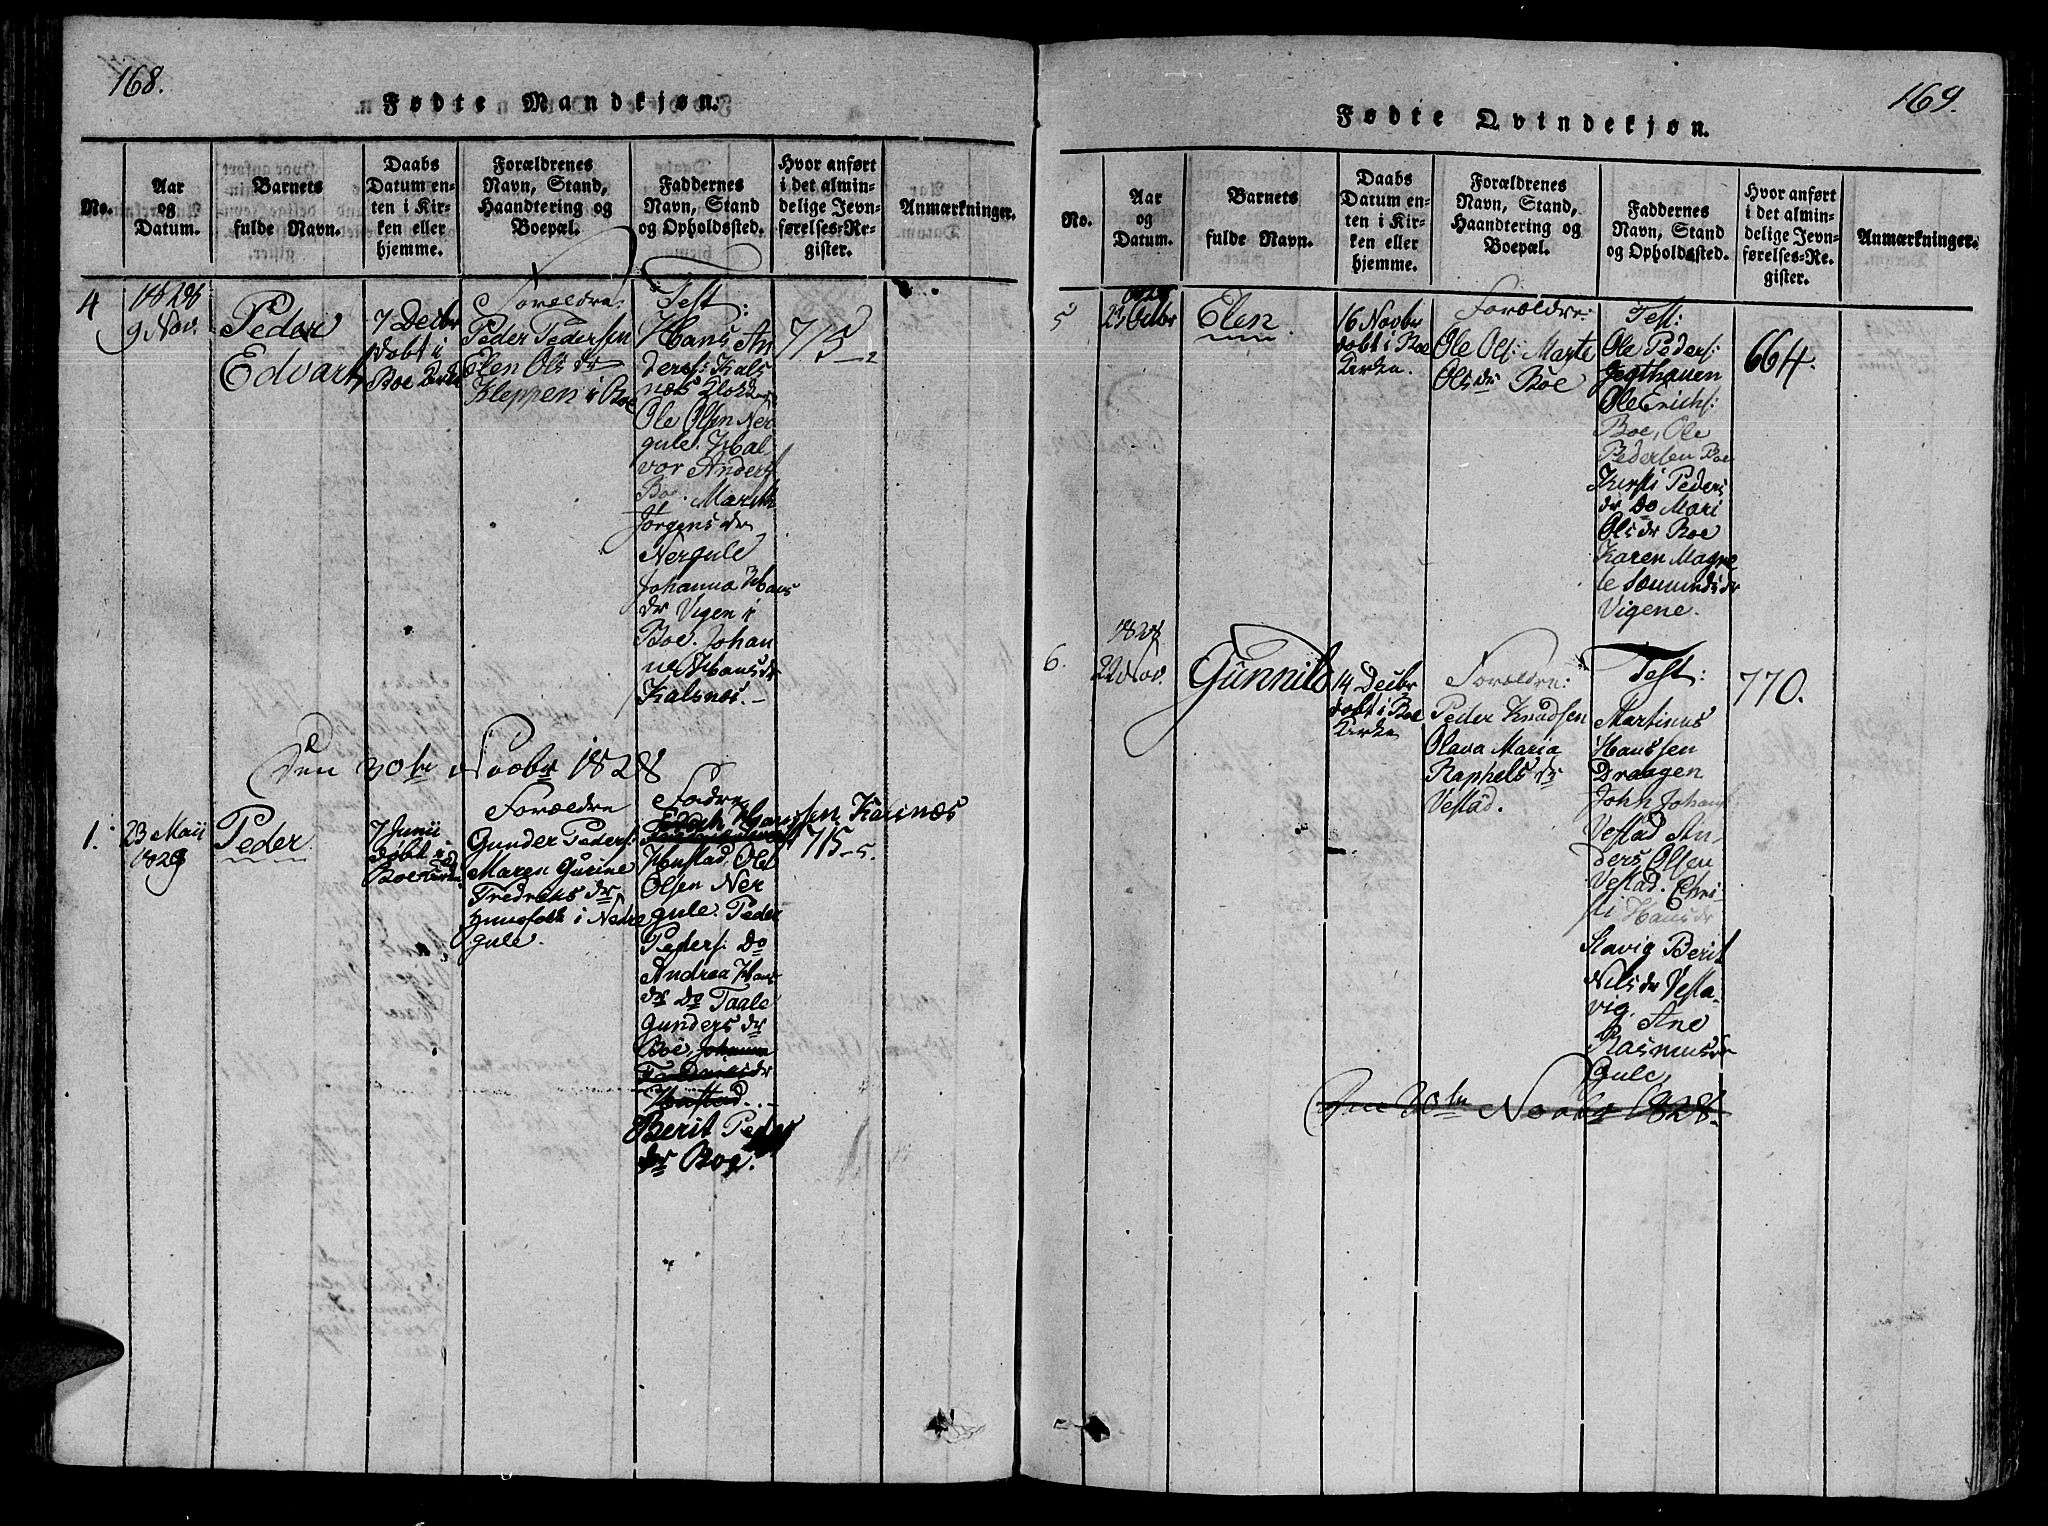 168.
Fødte Mandkjøn.
No.
Aar
og
Datum.
Barnets
fulde Navn.
Daabs
Datum en-
ten i Kir-
ken eller
hjemme.
Forældrenes
Navn, Stand,
Haandtering og
Boepæl.
Faddernes
Navn, Stand
og Opholdssted.
Hvor anført
i det almin-
delige Jevn-
førelses-Re-
gister.
Anmærkninger.
4
1828
9 Nov.
Peder
Edvart
7 Decbr
døbt i
Boe Kirke
Forældre:
Peder Pedersen
Elen Ols dr
Kleppen i Boe
Test:
Hans An
ders: Kals
næs Klokker
Ole Olsen Ner
gule. Hal
vor Anders
Boe. Marith
Jørgens dr
Nergule
Johanna Hans
dr Vigen i
Boe. Johan
ne Hans dr
Kalsnæs.
715-2
Den 30te Novbr 1828
1.
23 Maii
1829
Peder
7 Junii
døbt i
Boe Kirke
Forældre
Gunder Peders:
Maren Gurine
Fredriks dr
Huusfolk i Nedre
gule.
Fadre
Hanssen Kalsnæs
Honstad, Ole
Olsen Ner
gule. Peder
Peders: Do
Andrea Hans
dr Do Taale
Gunders dr
Boe, Johanna
Honstad
Berit Peders
dr Boe.
715-5.
169.
Fødte Qvindekjøn.
No.
Aar
og
Datum.
Barnets
fulde Navn.
Daabs
Datum en-
ten i Kir-
ken eller
hjemme.
Forældrenes
Navn, Stand,
Haandtering og
Boepæl.
Faddernes
Navn, Stand
og Opholdssted.
Hvor anført
i det almin-
delige Jevn-
førelses-Re-
gister.
Anmærkninger.
5
1828
23 Octbr
Elen
16 Novbr
døbt i Boe
Kirke.
Forældre:
Ole Ols: Marte
Ols dr Boe
Test:
Ole Peders:
Jegthauen
Ole Erichs:
Boe, Ole
Pedersen Boe
Kirsti Peders
dr Do Mari
Ols dr Boe
Karen Magre
te Sæmunds dr
Vigene.
664.
6.
1828
22 Nov.
Gunnild
14 Decbr
døbt i Boe
Kirke
Forældre:
Peder Knudsen
Olava Maria
Raphels dr
Vestad.
Test:
Martinus
Hanssen
Draagen
John Johans:
Vestad An
ders Olsen
Vestad. Chri
sti Hans dr
Slavig Berit
Nils dr Vesta
vig. Ane
Rasmus dr
Gule
770.
Den 30te Novbr 1828.